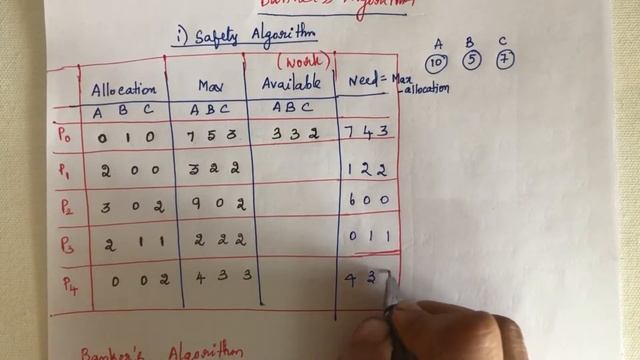 Banker's Algorithm
i) Safety Algorithm
A B C
10 5 7
(Work)
Allocation Max Available Need = Max - allocation
A B C A B C A B C
P0 0 1 0 7 5 3 3 3 2 7 4 3
P1 2 0 0 3 2 2 1 2 2
P2 3 0 2 9 0 2 6 0 0
P3 2 1 1 2 2 2 0 1 1
P4 0 0 2 4 3 3 4 3
Banker's Algorithm